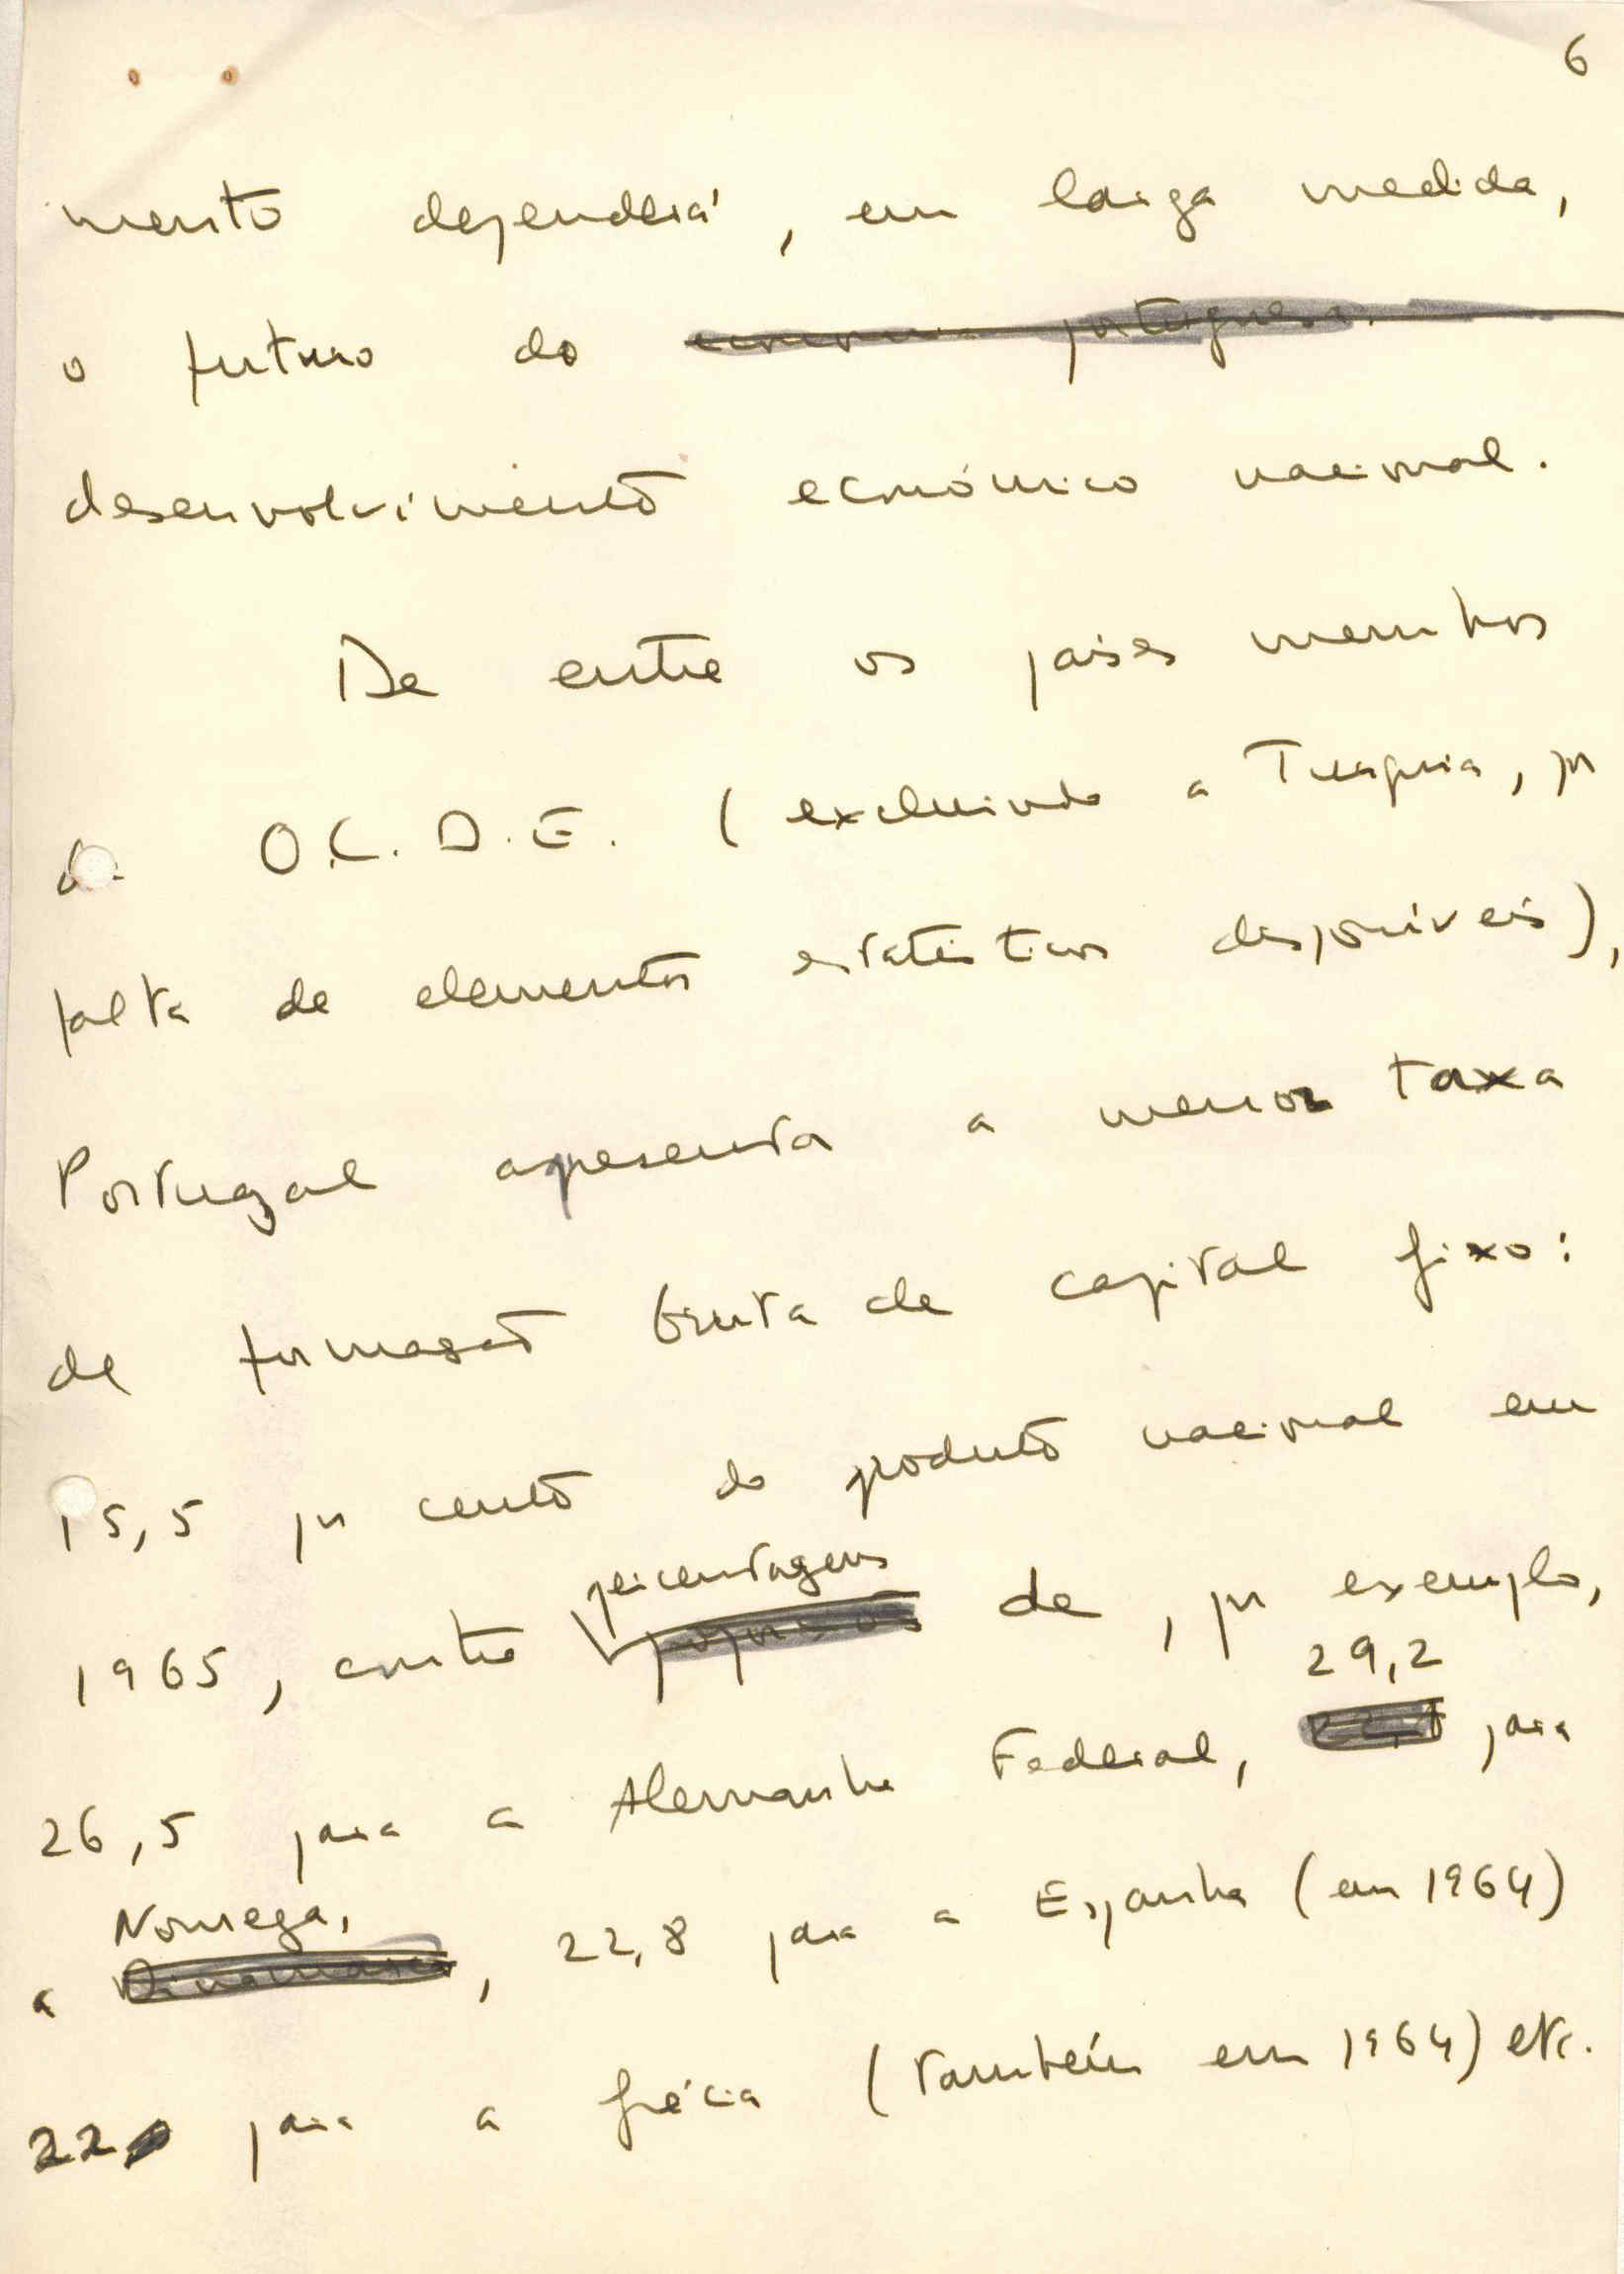 6
mento dependerá, em larga medida,
o futuro do economia portuguesa.
desenvolvimento económico nacional.
De entre os países membros
da O.C.D.E. (excluindo a Turquia, por
falta de elementos estatísticos disponíveis),
Portugal apresenta a menor taxa
de formação bruta de capital fixo:
15,5 por cento do produto nacional em
percentagens
1965, contra de, por exemplo,
29,2
26,5 para a Alemanha Federal, para
Noruega,
a Dinamarca, 22,8 para a Espanha (em 1964)
22 para a Grécia (também em 1964) etc.